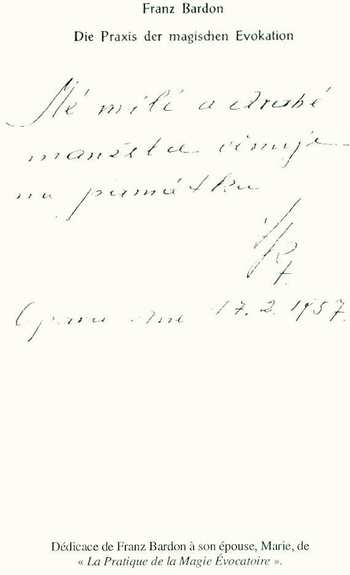 Franz Bardon
Die Praxis der magischen Evokation
Mé milé a drahé
manželce věnuje
na památku
Opava dne 17.2.1957.
Dédicace de Franz Bardon à son épouse, Marie, de
« La Pratique de la Magie Évocatoire ».